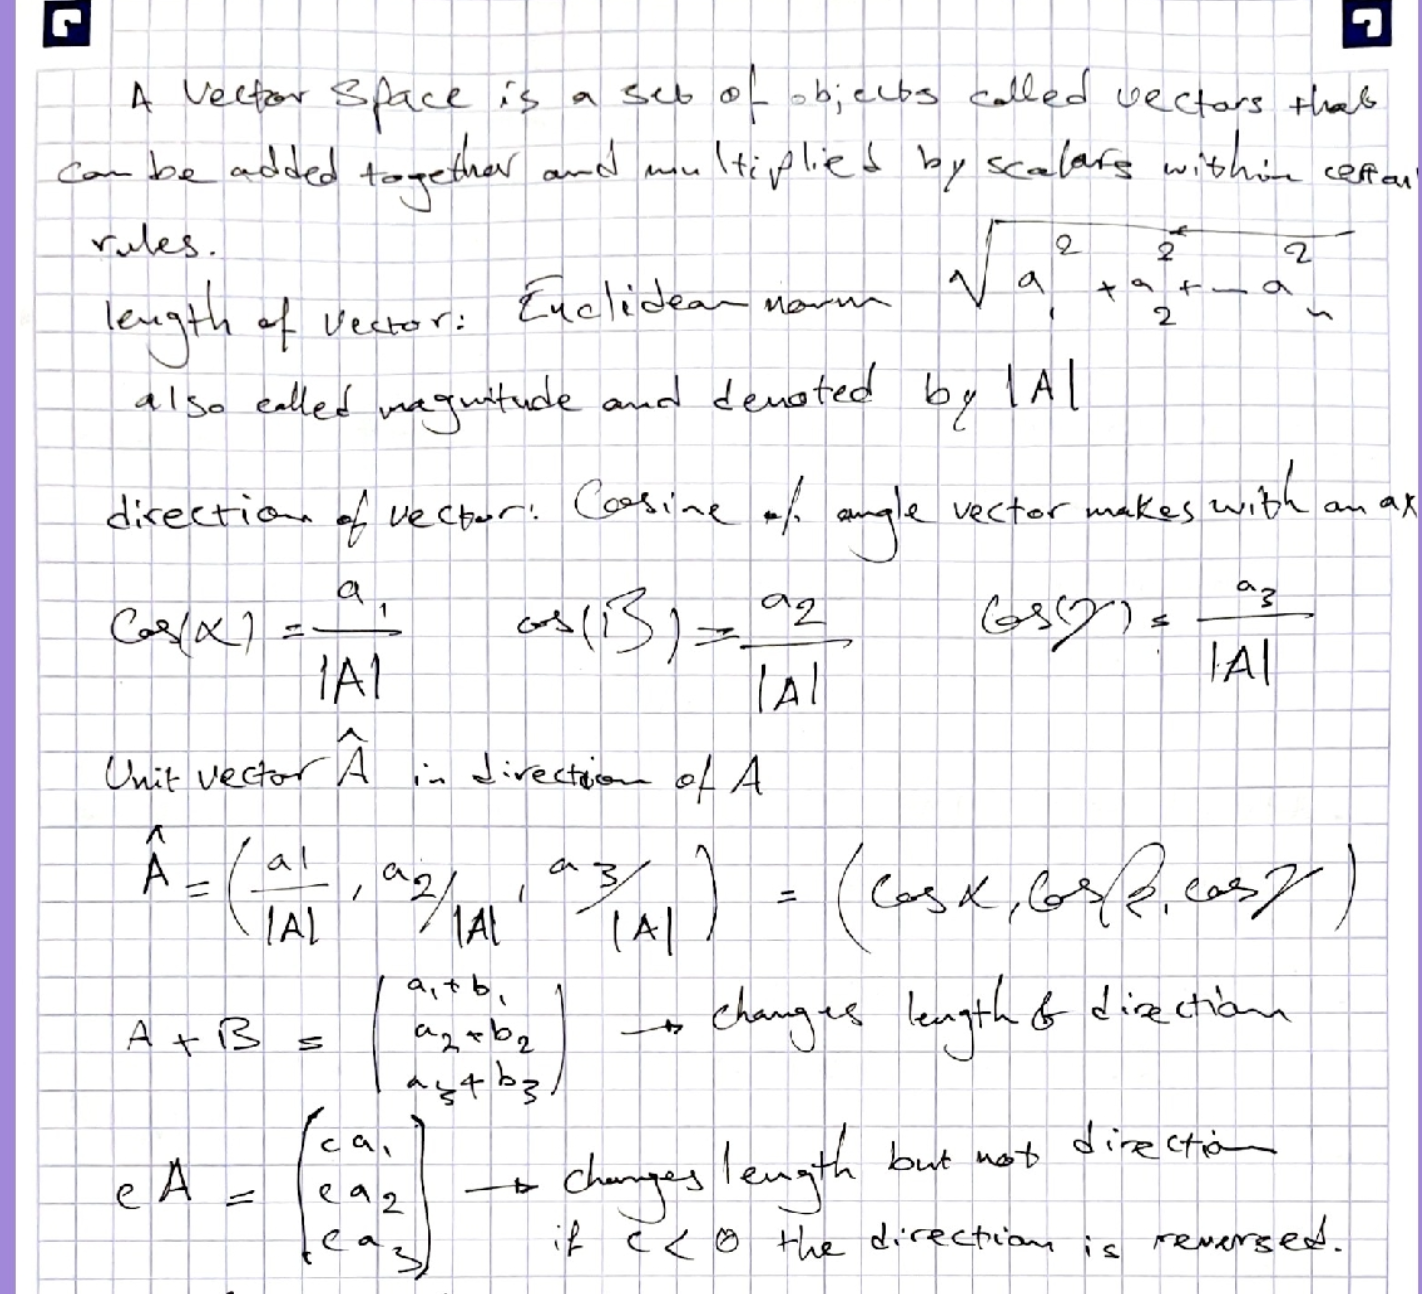 A vector space is a set of objects called vectors that
can be added together and multiplied by scalars within
rules.
length of vector: Euclidean norm √(a₁² + a₂² + -- aₙ²)
also called magnitude and denoted by |A|
direction of vector: Cosine of angle vector makes with an
Cos(α) = a₁/|A| cos(β) = a₂/|A| Cos(γ) = a₃/|A|
Unit vector Â in direction of A
Â = (a1/|A|, a2/|A|, a3/|A|) = (cos α, cos β, cos γ)
A + B = (a₁+b₁
a₂+b₂
a₃+b₃) → changes length & direction
cA = (ca₁
ca₂
ca₃) → changes length but not direction
if c < 0 the direction is reversed.